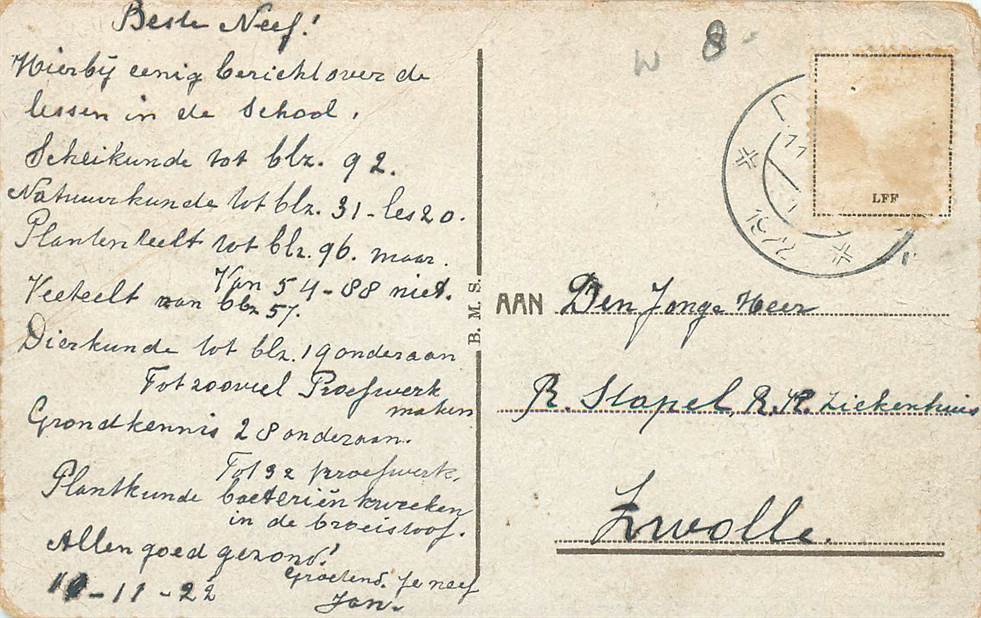 Beste Neef!
Hierbij eenig bericht over de
lessen in de School.
Scheikunde tot blz. 92.
Natuurkunde tot blz. 31-les 20.
Plantenteelt tot blz. 96. maar.
Van 54-88 niet.
Veeteelt van blz 57.
Dierkunde tot blz. 19 onderaan
Tot zooveel Proefwerk
maken
Grondkennis 28 onderaan.
Tot 32 proefwerk.
Plantkunde bacteriën kweeken
in de broeistoof.
Allen goed gezond!
Groetend. Je neef
Jan.
11-11-22
B. M. S.
W 8
1922
LFF
AAN Den Jonge Heer
R. Stapel, R.K. Ziekenhuis
Zwolle.